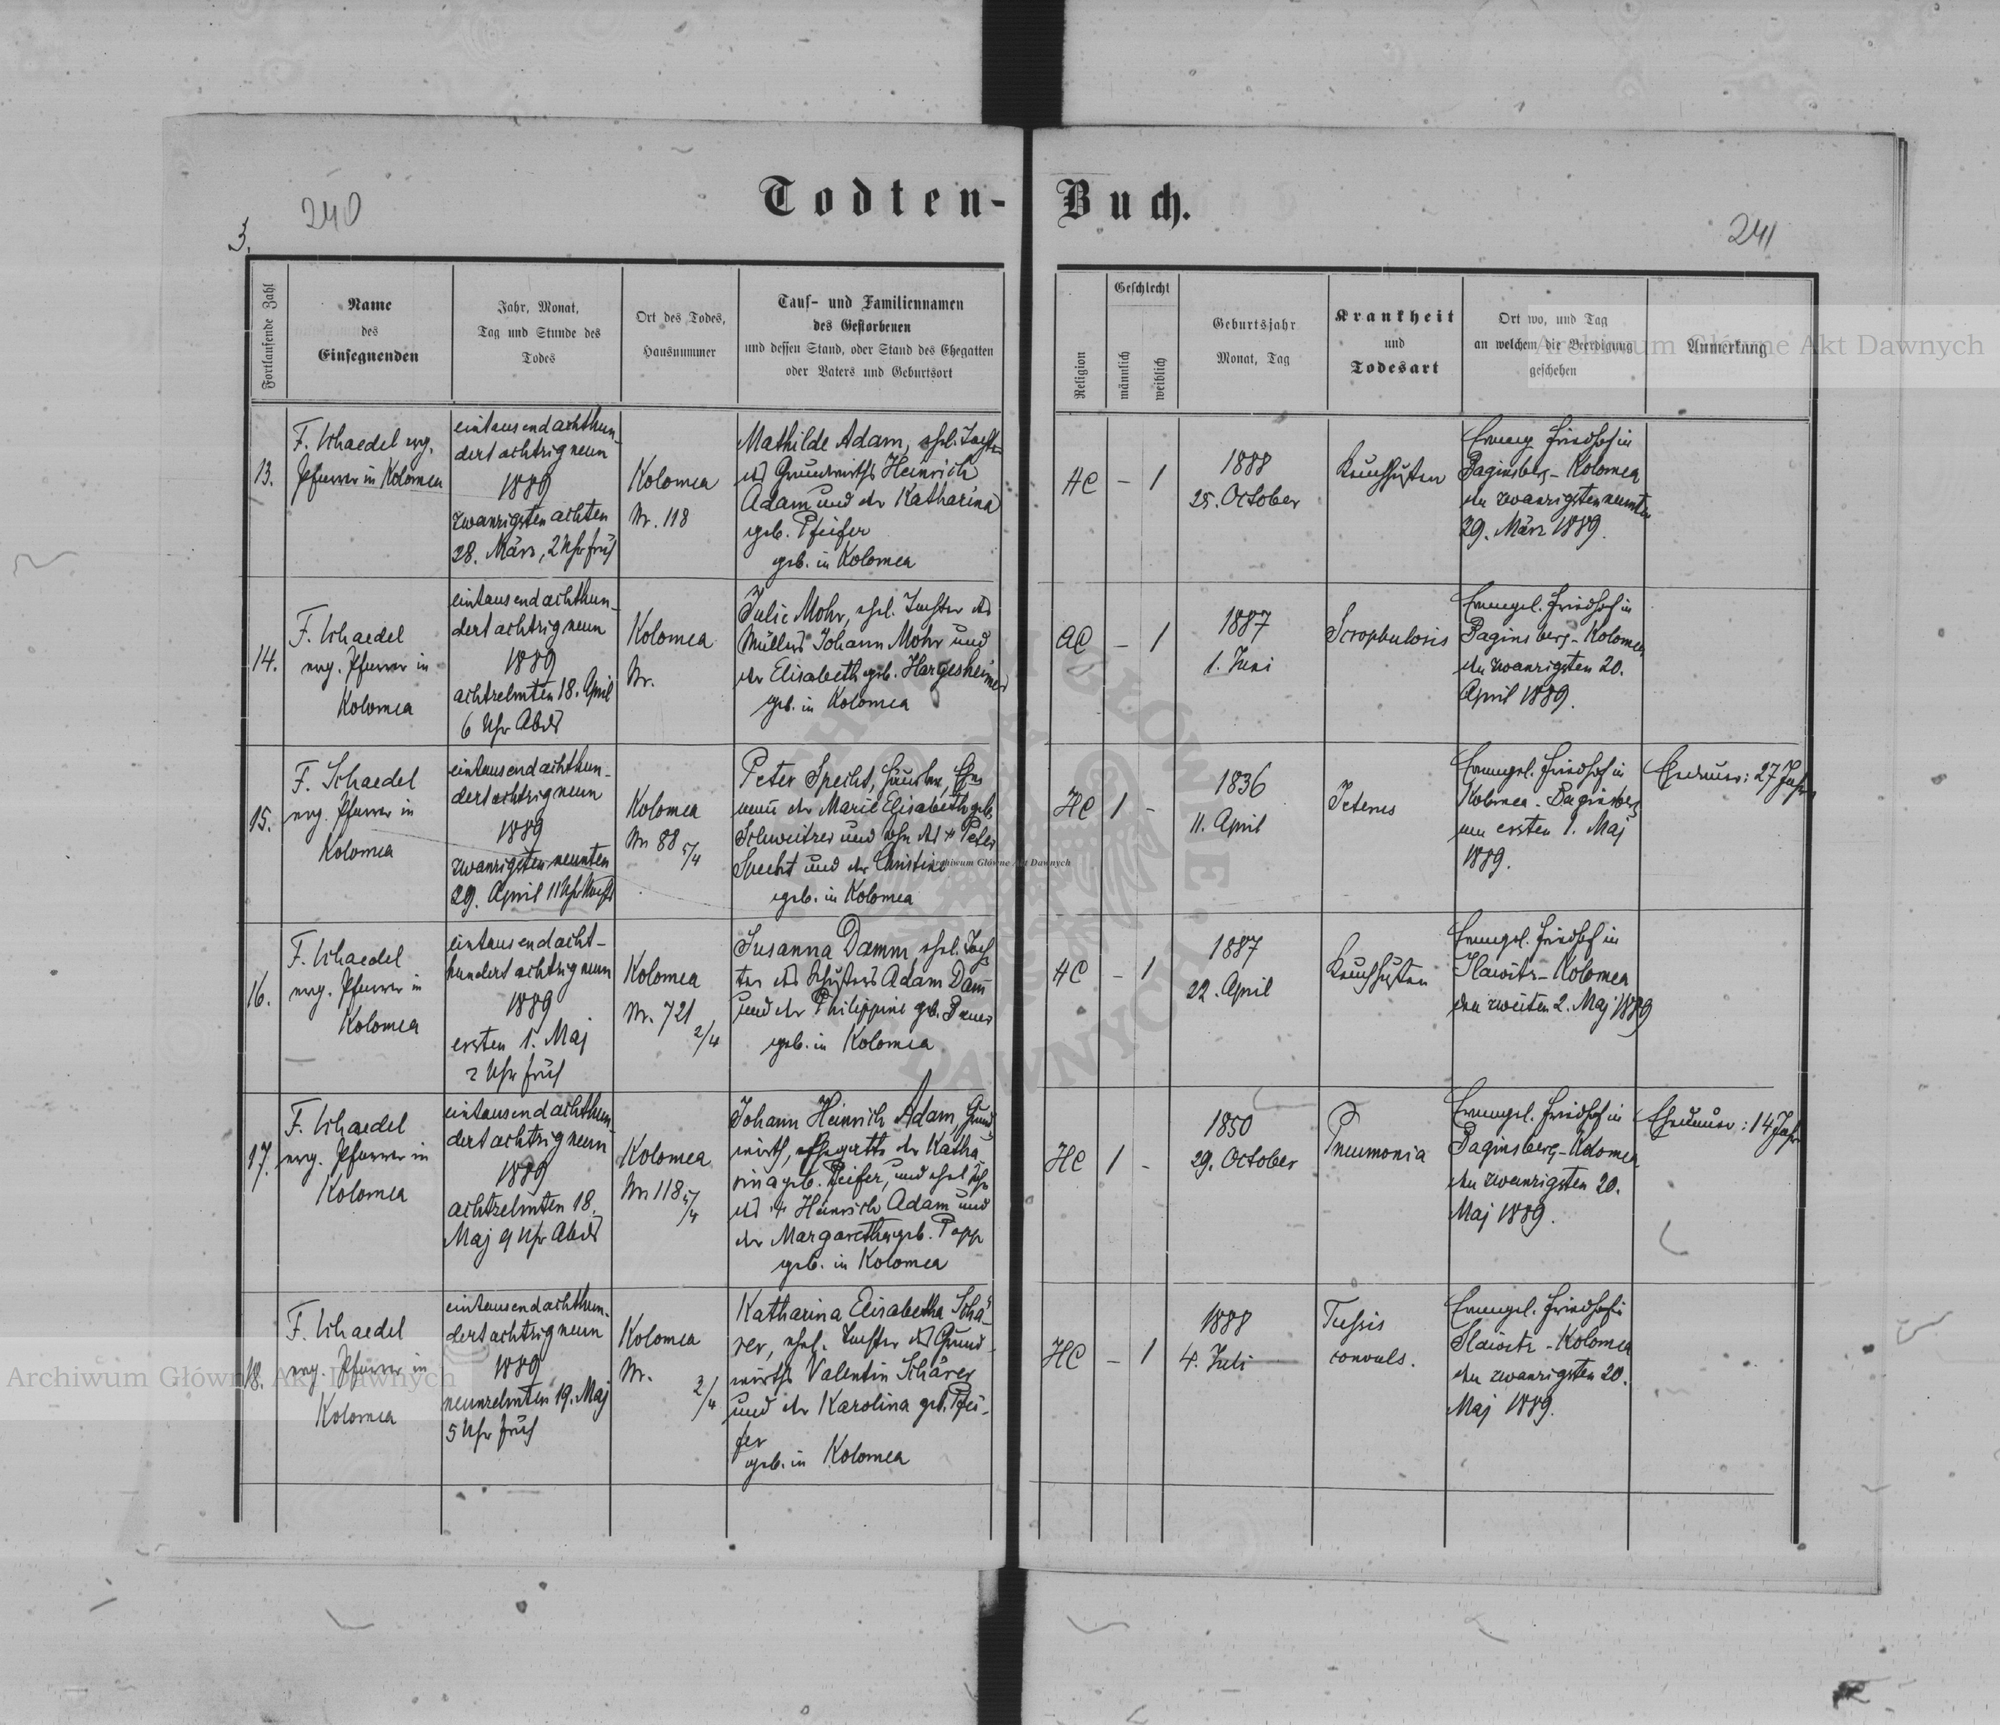 Todten-Buch.
240
241
3.
Fortlaufende Zahl
Name
des
Einsegnenden
Jahr, Monat,
Tag und Stunde des
Todes
Ort des Todes,
Hausnummer
Tauf- und Familiennamen
des Gestorbenen
und dessen Stand, oder Stand des Ehegatten
oder Vaters und Geburtsort
Religion
Geschlecht
männlich
weiblich
Geburtsjahr
Monat, Tag
Krankheit
und
Todesart
Ort wo, und Tag
an welchem die Beerdigung
geschehen
Anmerkung
Archiwum Główne Akt Dawnych
13.
F. Schaedel evg.
Pfarrer in Kolomea
eintausendachthun-
dertachtzigneun
1889
zwanzigsten achten
28. März, 2 Uhr früh
Kolomea
Nr. 118
Mathilde Adam, ehel. Tochter
des Grundwirths Heinrich
Adam und der Katharina
geb. Pfeifer
geb. in Kolomea
HC
-
1
1888
25. October
Keuchhusten
Evang. Friedhof in
Baginsberg-Kolomea
den zwanzigsten neunten
29. März 1889.
14.
F. Schaedel
evg. Pfarrer in
Kolomea
eintausendachthun-
dertachtzigneun
1889
achtzehnten 18. April
6 Uhr Abds
Kolomea
Nr.
Julie Mohr, ehel. Tochter des
Müllers Johann Mohr und
der Elisabeth geb. Hargesheimer
geb. in Kolomea
AC
-
1
1887
1. Juni
Scrophulosis
Evangel. Friedhof in
Baginsberg-Kolomea
den zwanzigsten 20.
April 1889.
15.
F. Schaedel
evg. Pfarrer in
Kolomea
eintausendachthun-
dertachtzigneun
1889
zwanzigsten neunten
29. April 11 Uhr Nachts
Kolomea
Nr 88 5/4
Peter Specht, Häusler, Ehe
mann der Marie Elisabeth geb.
Schweitzer und Sohn des + Peter
Specht und der Christine
geb. in Kolomea
HC
1
-
1836
11. April
Icterus
Evangel. Friedhof in
Kolomea-Baginsberg
am ersten 1. Maj
1889.
Ehedauer: 27 Jahre
Archiwum Główne Akt Dawnych
16.
F. Schaedel
evg. Pfarrer in
Kolomea
eintausendacht-
hundertachtzigneun
1889
ersten 1. Maj
2 Uhr früh
Kolomea
Nr. 721
2/4
Susanna Damm, ehel. Toch
ter des Schusters Adam Dam̄
und der Philippine geb. Bauer
geb. in Kolomea
HC
-
1
1887
22. April
Keuchhusten
Evangel. Friedhof in
Slawitz-Kolomea
den zweiten 2. Maj 1889
17.
F. Schaedel
evg. Pfarrer in
Kolomea
eintausendachthun-
dertachtzigneun
1889
achtzehnten 18.
Maj 9 Uhr Abds
Kolomea
Nr 118 5/4
Johann Heinrich Adam, Grund
wirth, Ehegatte der Katha
rina geb. Pfeifer, und ehel. Sohn
des + Heinrich Adam und
der Margaretha geb. Popp
geb. in Kolomea
HC
1
-
1850
29. October
Pneumonia
Evangel. Friedhof in
Baginsberg-Kolomea
den zwanzigsten 20.
Maj 1889.
Ehedauer: 14 Jahre
18.
F. Schaedel
evg. Pfarrer in
Kolomea
eintausendachthun-
dertachtzigneun
1889
neunzehnten 19. Maj
5 Uhr früh
Kolomea
Nr.
2/4
Katharina Elisabetha Schä-
rer, ehel. Tochter des Grund-
wirths Valentin Schärer
und der Karolina geb. Pfei-
fer
geb. in Kolomea
HC
-
1
1888
4. Juli
Tussis
convuls.
Evangel. Friedhof in
Slawitz-Kolomea
den zwanzigsten 20.
Maj 1889.
Archiwum Główne Akt Dawnych